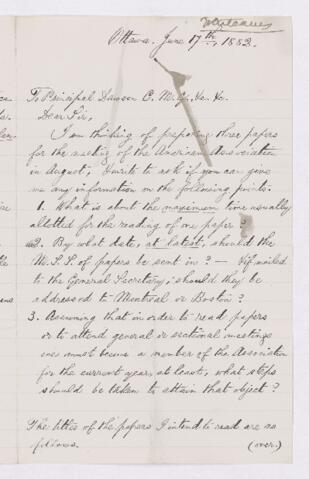 Ottawa. June 17th, 1882.
To Principal Dawson C. M. G., &c. &c.
Dear Sir,
I am thinking of preparing three papers
for the meeting of the American Association
in August; & write to ask if you can give
me any information on the following points.
1. What is about the maximum time usually
allotted for the reading of one paper?
2. By what date, at latest, should the
M.S.S. of papers be sent in? — If mailed
to the General Secretary, should they be
addressed to Montreal or Boston?
3. Assuming that in order to read papers
or to attend general or sectional meetings
one must become a member of the Association
for the current year, at least, what steps
should be taken to attain that object?
The titles of the papers I intend to read are as
follows.
(over.)